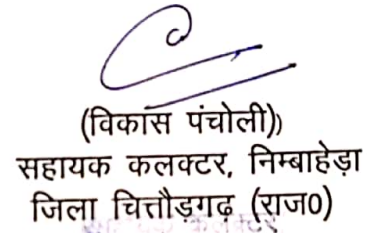 (विकास पंचोली))
सहायक कलक्टर, निम्बाहेड़ा
जिला चित्तौड़गढ़ (राज0)